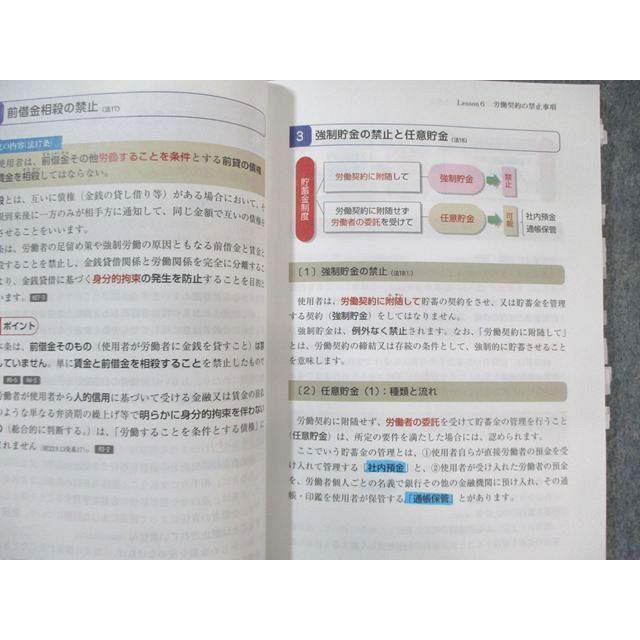 前借金相殺の禁止 (法17)
文の内容(法17条)
使用者は、前借金その他労働することを条件とする前貸の債権
賃金を相殺してはならない。
とは、互いに債権（金銭の貸し借り等）がある場合において、そ
到来後に一方のみが相手方に通知して、同じ金額で互いの債権を
させることをいいます。
条は、労働者の足留め策や強制労働の原因ともなる前借金と賃金と
することを禁止し、金銭貸借関係と労働関係を完全に分離するこ
より、金銭貸借に基づく身分的拘束の発生を防止することを目的と
います。
ポイント
条は、前借金そのもの（使用者が労働者に金銭を貸すこと）は禁
していません。単に賃金と前借金を相殺することを禁止したもので
労働者が使用者から人的信用に基づいて受ける金融又は賃金の前払
のような単なる弁済期の繰上げ等で明らかに身分的拘束を伴わない
の（総合的に判断する。）は、「労働することを条件とする債権」に
まれません
Lesson 6 労働契約の禁止事項
3 強制貯金の禁止と任意貯金 (法18)
貯蓄金制度
労働契約に附随して
強制貯金
禁止
労働契約に附随せず
労働者の委託を受けて
任意貯金
可能
社内預金
通帳保管
〔1〕強制貯金の禁止 (法18①)
使用者は、労働契約に附随して貯蓄の契約をさせ、又は貯蓄金を管理
する契約（強制貯金）をしてはなりません。
強制貯金は、例外なく禁止されます。なお、「労働契約に附随して」
とは、労働契約の締結又は存続の条件として、強制的に貯蓄させること
を意味します。
〔2〕任意貯金（1）：種類と流れ
労働契約に附随せず、労働者の委託を受けて貯蓄金の管理を行うこと
（任意貯金）は、所定の要件を満たした場合には、認められます。
ここでいう貯蓄金の管理とは、①使用者自らが直接労働者の預金を受
け入れて管理する「社内預金」と、②使用者が受け入れた労働者の預金
を、労働者個人ごとの名義で銀行その他の金融機関に預け入れ、その通
帳・印鑑を使用者が保管する「通帳保管」とがあります。